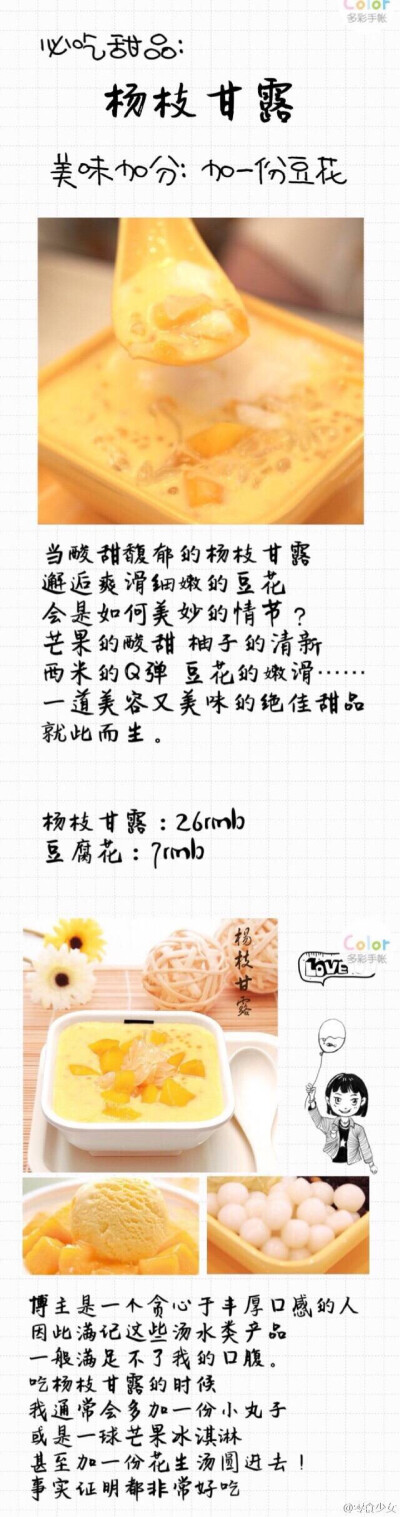 Color
多彩手帐
必吃甜品:
杨枝甘露
美味加分: 加一份豆花
当酸甜馥郁的杨枝甘露
邂逅爽滑细嫩的豆花
会是如何美妙的情节?
芒果的酸甜 柚子的清新
西米的Q弹 豆花的嫩滑……
一道美容又美味的绝佳甜品
就此而生。
杨枝甘露:26rmb
豆腐花:7rmb
Color
多彩手帐
杨枝甘露
LOVE
博主是一个贪心于丰厚口感的人
因此满记这些汤水类产品
一般满足不了我的口腹。
吃杨枝甘露的时候
我通常会多加一份小丸子
或是一球芒果冰淇淋
甚至加一份花生汤圆进去!
事实证明都非常好吃